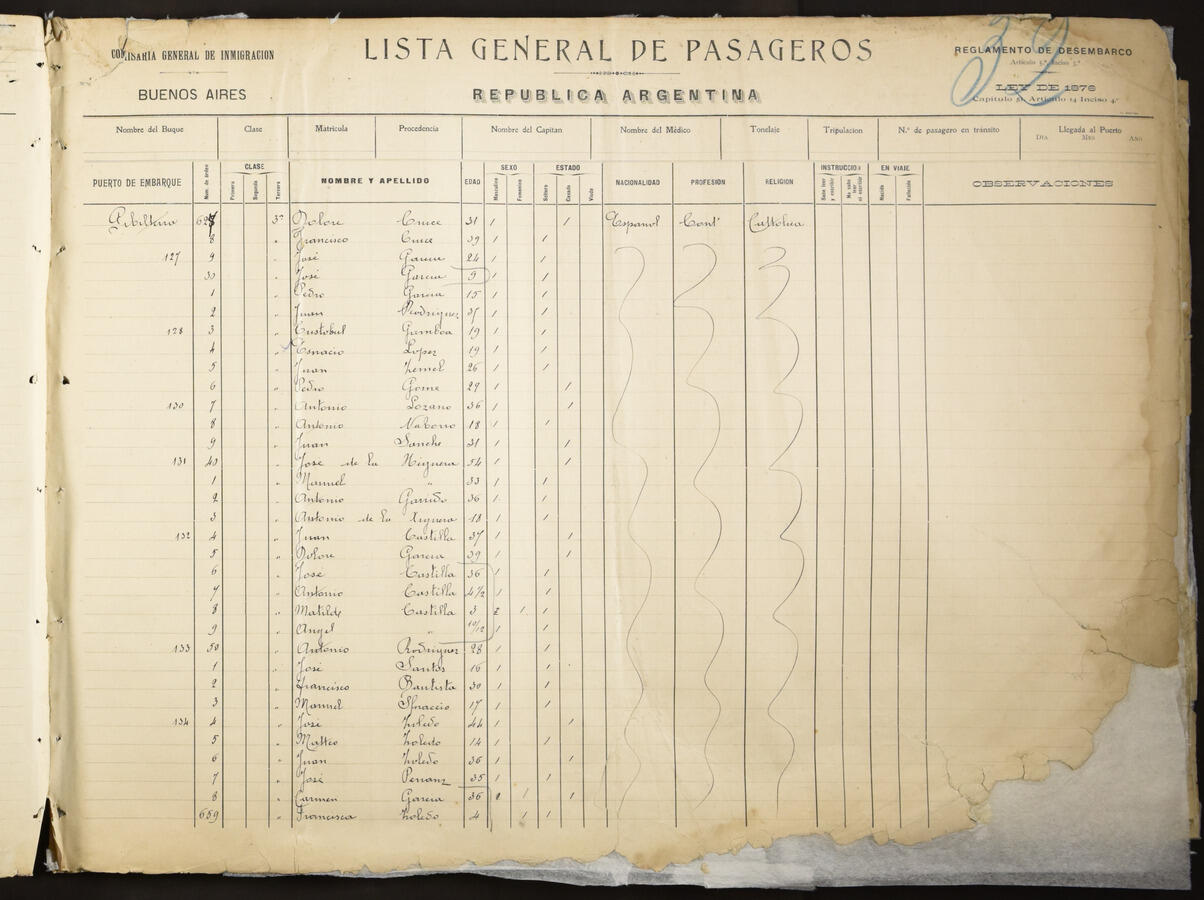 COMISARIA GENERAL DE INMIGRACION
BUENOS AIRES
LISTA GENERAL DE PASAGEROS
REPUBLICA ARGENTINA
39
REGLAMENTO DE DESEMBARCO
Artículo 5.º Inciso 5.º
LEY DE 1876
Capítulo 5, Artículo 14 Inciso 4.º
Nombre del Buque Clase Matricula Procedencia Nombre del Capitan Nombre del Médico Tonelaje Tripulacion N.º de pasagero en tránsito Llegada al Puerto
DIA MES AÑO
PUERTO DE EMBARQUE Num. de orden CLASE Primera Segunda Tercera NOMBRE Y APELLIDO EDAD SEXO Masculino Femenino ESTADO Soltero Casado Viudo NACIONALIDAD PROFESIÓN RELIGION INSTRUCCION Sabe leer y escribir No sabe leer ni escribir EN VIAJE Nacido Fallecido OBSERVACIONES
627 3ª Dolore 31 / / Español Cattolica
8 " Francisco 39 / /
127 9 " José Garcia 24 / /
30 " José Garcia 9 / /
1 " Pedro Garcia 15 / /
2 " Juan Rodriguez / /
128 3 " Gamboa 19 / /
4 " Lopez 19 / /
5 " Juan 26 / /
6 " Pedro Gome 29 / /
130 7 " Antonio Lozano 36 / /
8 " Antonio 18 / /
9 " Juan Sanche 31 / /
131 40 " José de la Higuera 54 / /
1 " Manuel " 33 / /
2 " Antonio Garrido 36 / /
3 " Antonio de la 18 / /
132 4 " Juan Castilla 37 / /
5 " Dolore Garcia 39 / /
6 " José Castilla 36 / /
7 " Antonio Castilla 4 1/2 / /
8 " Matilde Castilla 3 / /
9 " Angel " 10/12 / /
133 50 " Antonio Rodriguez 28 / /
1 " José Santos 16 / /
2 " Francisco Bautista 30 / /
3 " Manuel 17 / /
134 4 " José Toledo 44 / /
5 " Matteo Toledo 14 / /
6 " Juan Toledo 36 / /
7 " José 35 / /
8 " Carmen Garcia 36 / /
659 " Francisca Toledo 4 / /